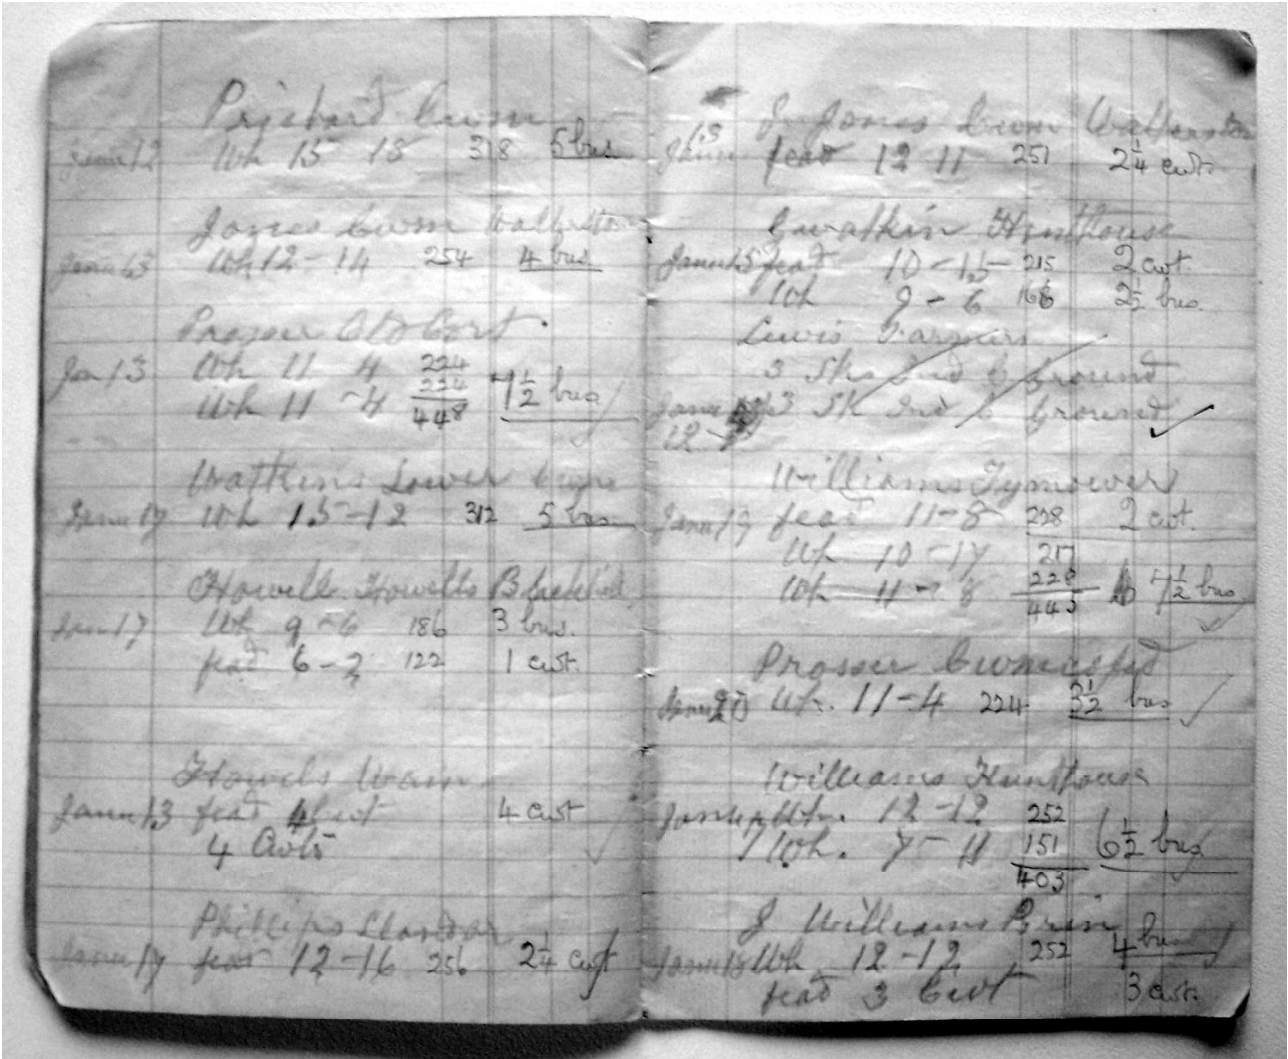 Prichard Cwm
Janu 12 Wh 15 18 318 5 bus
Jones Cwm Walterston
Janu 13 Wh 12 - 14 254 4 bus
Prosser Old Cort.
Jan 13 Wh 11 4 224
Wh 11 - 4 224 7 1/2 bus
448
Watkins Lower
Janu 17 Wh 15 - 12 312 5 bus
Howell Howells
Jan 17 Wh 9 - 6 186 3 bus.
fead 6 - 2 122 1 cwt.
Howels Wain
Janu 13 fead 4 cwt 4 cwt
4 Cwts
Phillips Llandar
Janu 17 fead 12 - 16 256 2 1/4 cwt
J Jones Cwm Walterston
Janu 13 fead 12 11 251 2 1/4 cwt.
Gwatkin Hunthouse
Janu 15 fead 10 - 15 - 215 2 cwt.
Wh 9 - 6 168 2 1/2 bus.
Lewis Farmers
3 Sks Ind C Ground
Janu 3 Sk Ind C Ground
12
Williams Tymower
Janu 19 fead 11 - 8 228 2 cwt.
Wh 10 - 17 217
Wh 11 - 8 228 7 1/2 bus
445
Prosser
Janu 20 Wh. 11 - 4 224 3 1/2 bus
Williams Hunthouse
Wh. 12 - 12 252
Wh. 7 - 11 151 6 1/2 bus
403
J Williams Brin
Janu 18 Wh 12 - 12 252 4 bus
fead 3 Cwt 3 cwt.